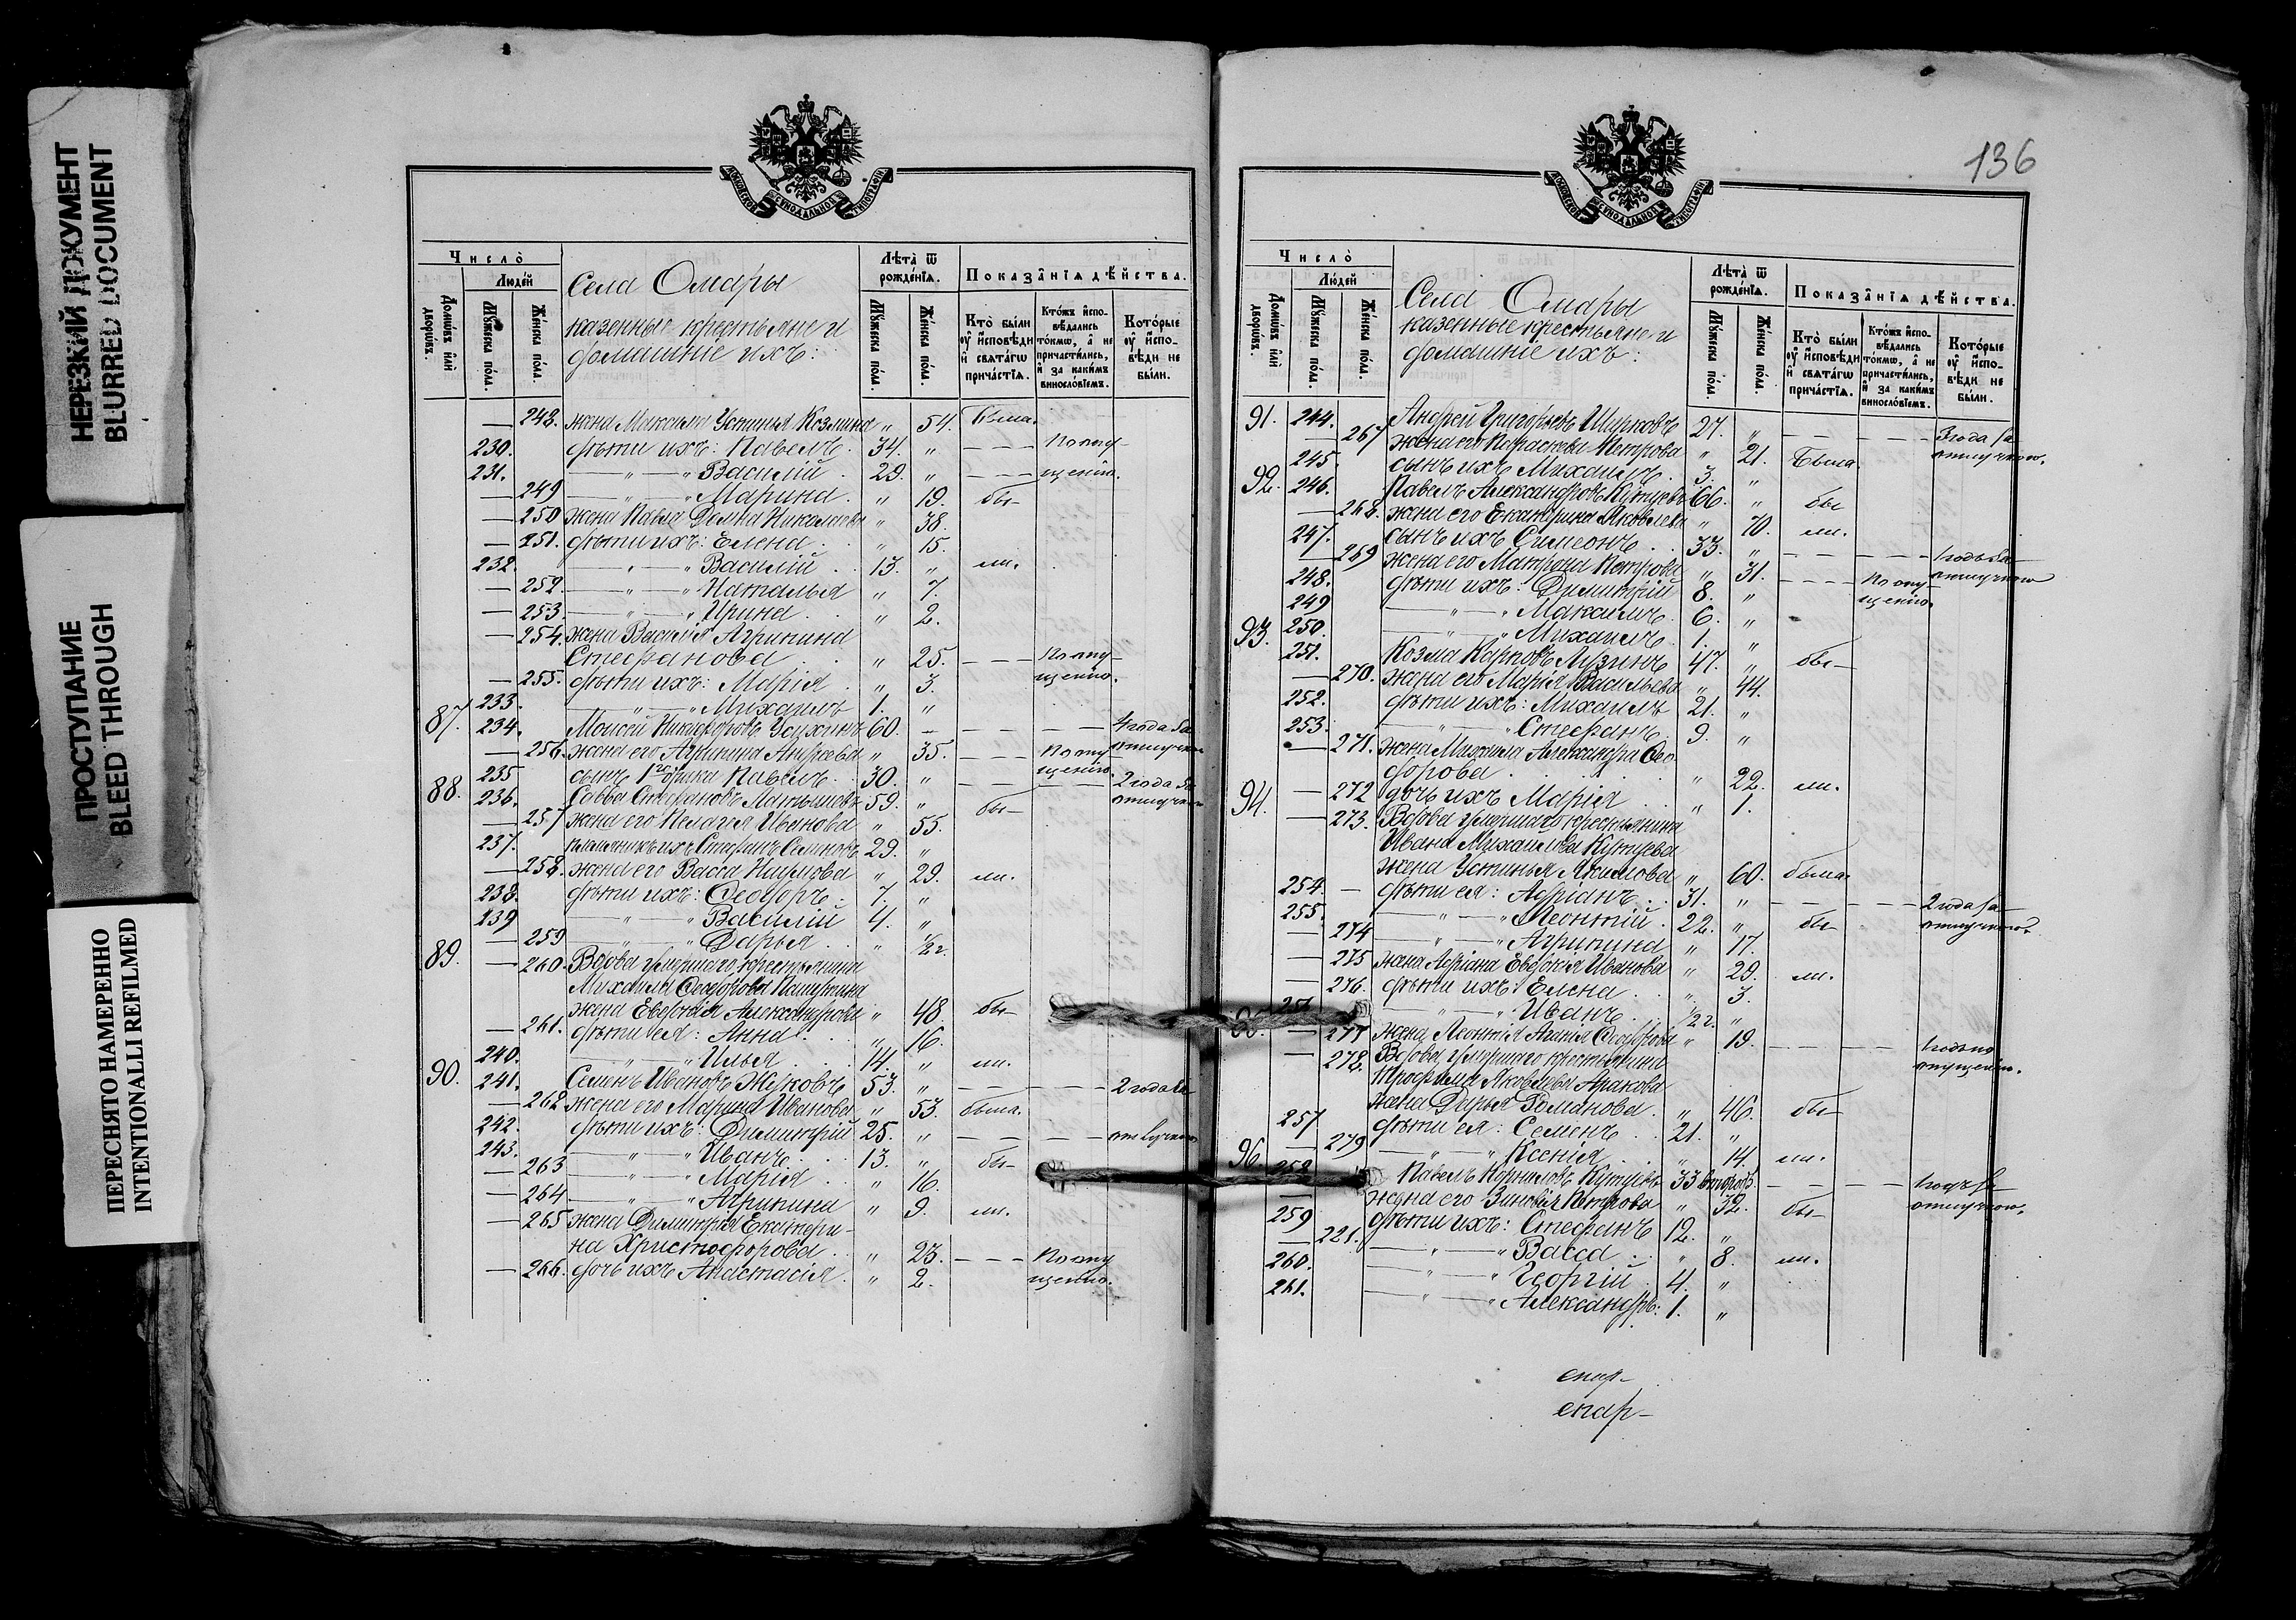 НЕРЕЗКИЙ ДОКУМЕНТ
BLURRED DOCUMENT
ПРОСТУПАНИЕ
BLEED THROUGH
ПЕРЕСНЯТО НАМЕРЕННО
INTENTIONALLI REFILMED
МОСКОВСКОЙ СѴНОДАЛЬНОЙ ТИПОГРАФІИ
Число̀
Людей
Домѡвъ и҆лѝ дворѡвъ.
Мꙋжеска пола.
Женска пола.
Села Омары
казенные крестьяне и
домашніе ихъ:
Лѣта̀ ѿ рожденїѧ.
Мꙋжеска пола.
Женска пола.
Показанїѧ дѣйства.
Кто̀ были ᲂу҆ и҆сповѣди и҆ свѧтагѡ причастїѧ.
Кто́жъ и҆сповѣдались то́кмѡ, а҆ не причастились, и҆ за какимъ винословїемъ.
Которые ᲂу҆ и҆споведи не были.
— 248. жена Максима Устинья Козмина „ 54. Была.
230. дѣти ихъ: Павелъ. 34. „ — — — По опу-
231. — „ — „ Василій. 29. „ — — — щенію.
— 249 — „ — „ Марина. „ 19. бы-
— 250 жена Павла Домна Николаева „ 38.
— 251. дѣти ихъ: Елена. „ 15.
232. — „ — „ Василій. 13. „ ли.
— 252. — „ — „ Наталья „ 7.
— 253. — „ — „ Ирина. „ 2.
— 254. жена Василія Агрипина
Стефанова „ 25. — — — По опу-
— 255. дѣти ихъ: Марія. „ 3. щенію.
233. — „ — „ Михаилъ 1. „
87. 234. Моисей Никифоровъ 60. — — — — 4 года за
— 256. жена его Агрипина Андреева „ 35. — — — По опу- отлучкою
235 сынъ 1го брака Павелъ. 30. „ щенію. — 2 года за
88. 236. Савва Стефановъ Латышевъ 59. „ бы- отлучкою
— 257 жена его Пелагея Иванова „ 55.
237. племянникъ ихъ 29. „
— 258. жена его Васса Наумова „ 29. ли.
238. дѣти ихъ: Ѳеодоръ. 7. „
239 — „ — „ Василій 4. „
— 259 — „ — „ Дарья. „ 1/2 г.
89. — 260. Вдова умершаго крестьянина
Михаила Ѳеодорова
жена Евдокія Александрова „ 48. бы-
— 261. дѣти ея: Анна. „ 16.
240. — „ — „ Илья. 14. „ ли.
90. 241. Семенъ Ивановъ Жуковъ 53. „ — — — — 2 года за
— 262 жена его Марина Иванова „ 53. была.
242. дѣти ихъ: Димитрій 25. „ — — — отлучкою
243. — „ — „ Иванъ. 13. „ бы-
— 263 — „ — „ Марія. „ 16.
— 264 — „ — „ Агрипина „ 9. ли.
— 265 жена Димитрія Екатери-
на Христофорова. „ 23. — — — По опу
— 266. дочь ихъ Анастасія. „ 2. щенію.
136
МОСКОВСКОЙ СѴНОДАЛЬНОЙ ТИПОГРАФІИ
Число̀
Людей
Домѡвъ и҆лѝ дворѡвъ.
Мꙋжеска пола.
Женска пола.
Села Омары
казенные крестьяне и
домашніе ихъ:
Лѣта̀ ѿ рожденїѧ.
Мꙋжеска пола.
Женска пола.
Показанїѧ дѣйства.
Кто̀ были ᲂу҆ и҆сповѣди и҆ свѧтагѡ причастїѧ.
Кто́жъ и҆сповѣдались то́кмѡ, а҆ не причастились, и҆ за какимъ винословїемъ.
Которые ᲂу҆ и҆споведи не были.
91. 244. Андрей Григорьевъ Ширковъ 27. „ — — — 3 года за
— 267 жена его Параскева Петрова „ 21. Была. отлучкою.
245. сынъ ихъ Михаилъ. 3. „
92. 246. Павелъ Александровъ Купцевъ 66. „ бы
— 268. жена его Екатерина Яковлева „ 70. ли.
247. сынъ ихъ Симеонъ. 33. „ — — — — 1 годъ за
— 269 жена его Матрона Петрова „ 31. — — — По опу- отлучкою
248. дѣти ихъ: Димитрій 8. „ щенію.
249 — „ — „ Максимъ. 6. „
250. — „ — „ Михаилъ. 1. „
93. 251. Козма Карповъ Лузинъ 47. „ бы-
— 270. жена его Марія Васильева „ 44.
252. дѣти ихъ: Михаилъ 21. „
253. — „ — „ Стефанъ. 9. „
— 271. жена Михаила Александра Ѳео-
дорова. „ 22. ли.
— 272 дочь ихъ Марія. „ 1.
94. — 273. Вдова умершаго крестьянина
Ивана Михайлова Купцева
жена Устинья Акимова „ 60. была.
254. — дѣти ея: Адріанъ. 31. „ — — — 2 года за
255. — „ — „ Леонтій. 22. „ бы- отлучкою.
— 274 — „ — „ Агрипина „ 17.
— 275 жена Адріана Евдокія Иванова „ 29. ли.
— 276. дѣти ихъ: Елена. „ 3.
— „ — „ Иванъ. 1/2 г. „
— 277 жена Леонтія Ѳеодорова „ 19. — — — 1 годъ по
— 278. Вдова умершаго крестьянина опущенію.
Трофима Яковлева Аракова
жена Дарья Романова. „ 46. бы-
257 дѣти ея: Семенъ. 21. „
— 279 — „ — „ Ксенія. „ 14. ли.
96. 258. Павелъ Корниловъ Купцевъ 33 — — — — 1 годъ за
жена его Зиновія Петрова „ 32. бы- отлучкою.
259 дѣти ихъ: Стефанъ 12. „
— 221. — „ — „ Васса. „ 8. ли.
260. — „ — „ Георгій. 4. „
261. — „ — „ Александръ: 1. „